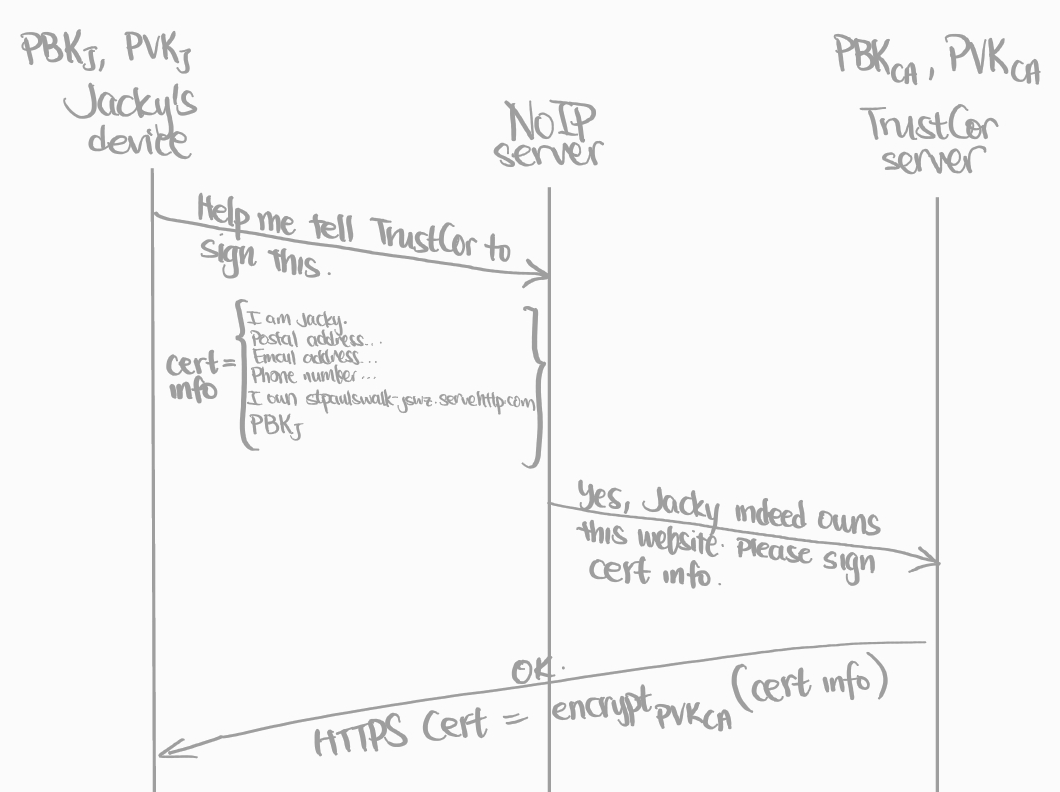 PBKJ, PVKJ
Jacky's
device
NoIP
server
PBKCA, PVKCA
TrustCor
server
Help me tell TrustCor to
sign this.
cert =
info
I am Jacky.
Postal address...
Email address...
Phone number...
I own stpaulswalk-jswz.servehttp.com
PBKJ
Yes, Jacky indeed owns
this website. Please sign
cert info.
OK.
HTTPS Cert = encryptPVKCA(cert info)